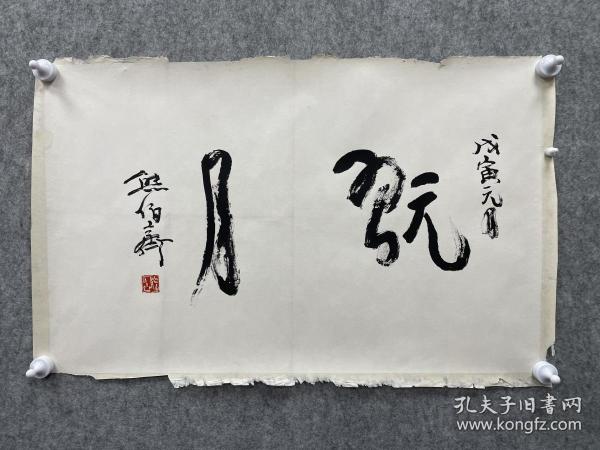 戊寅元月
翫月
熊伯齊
孔夫子旧書网
www.kongfz.com